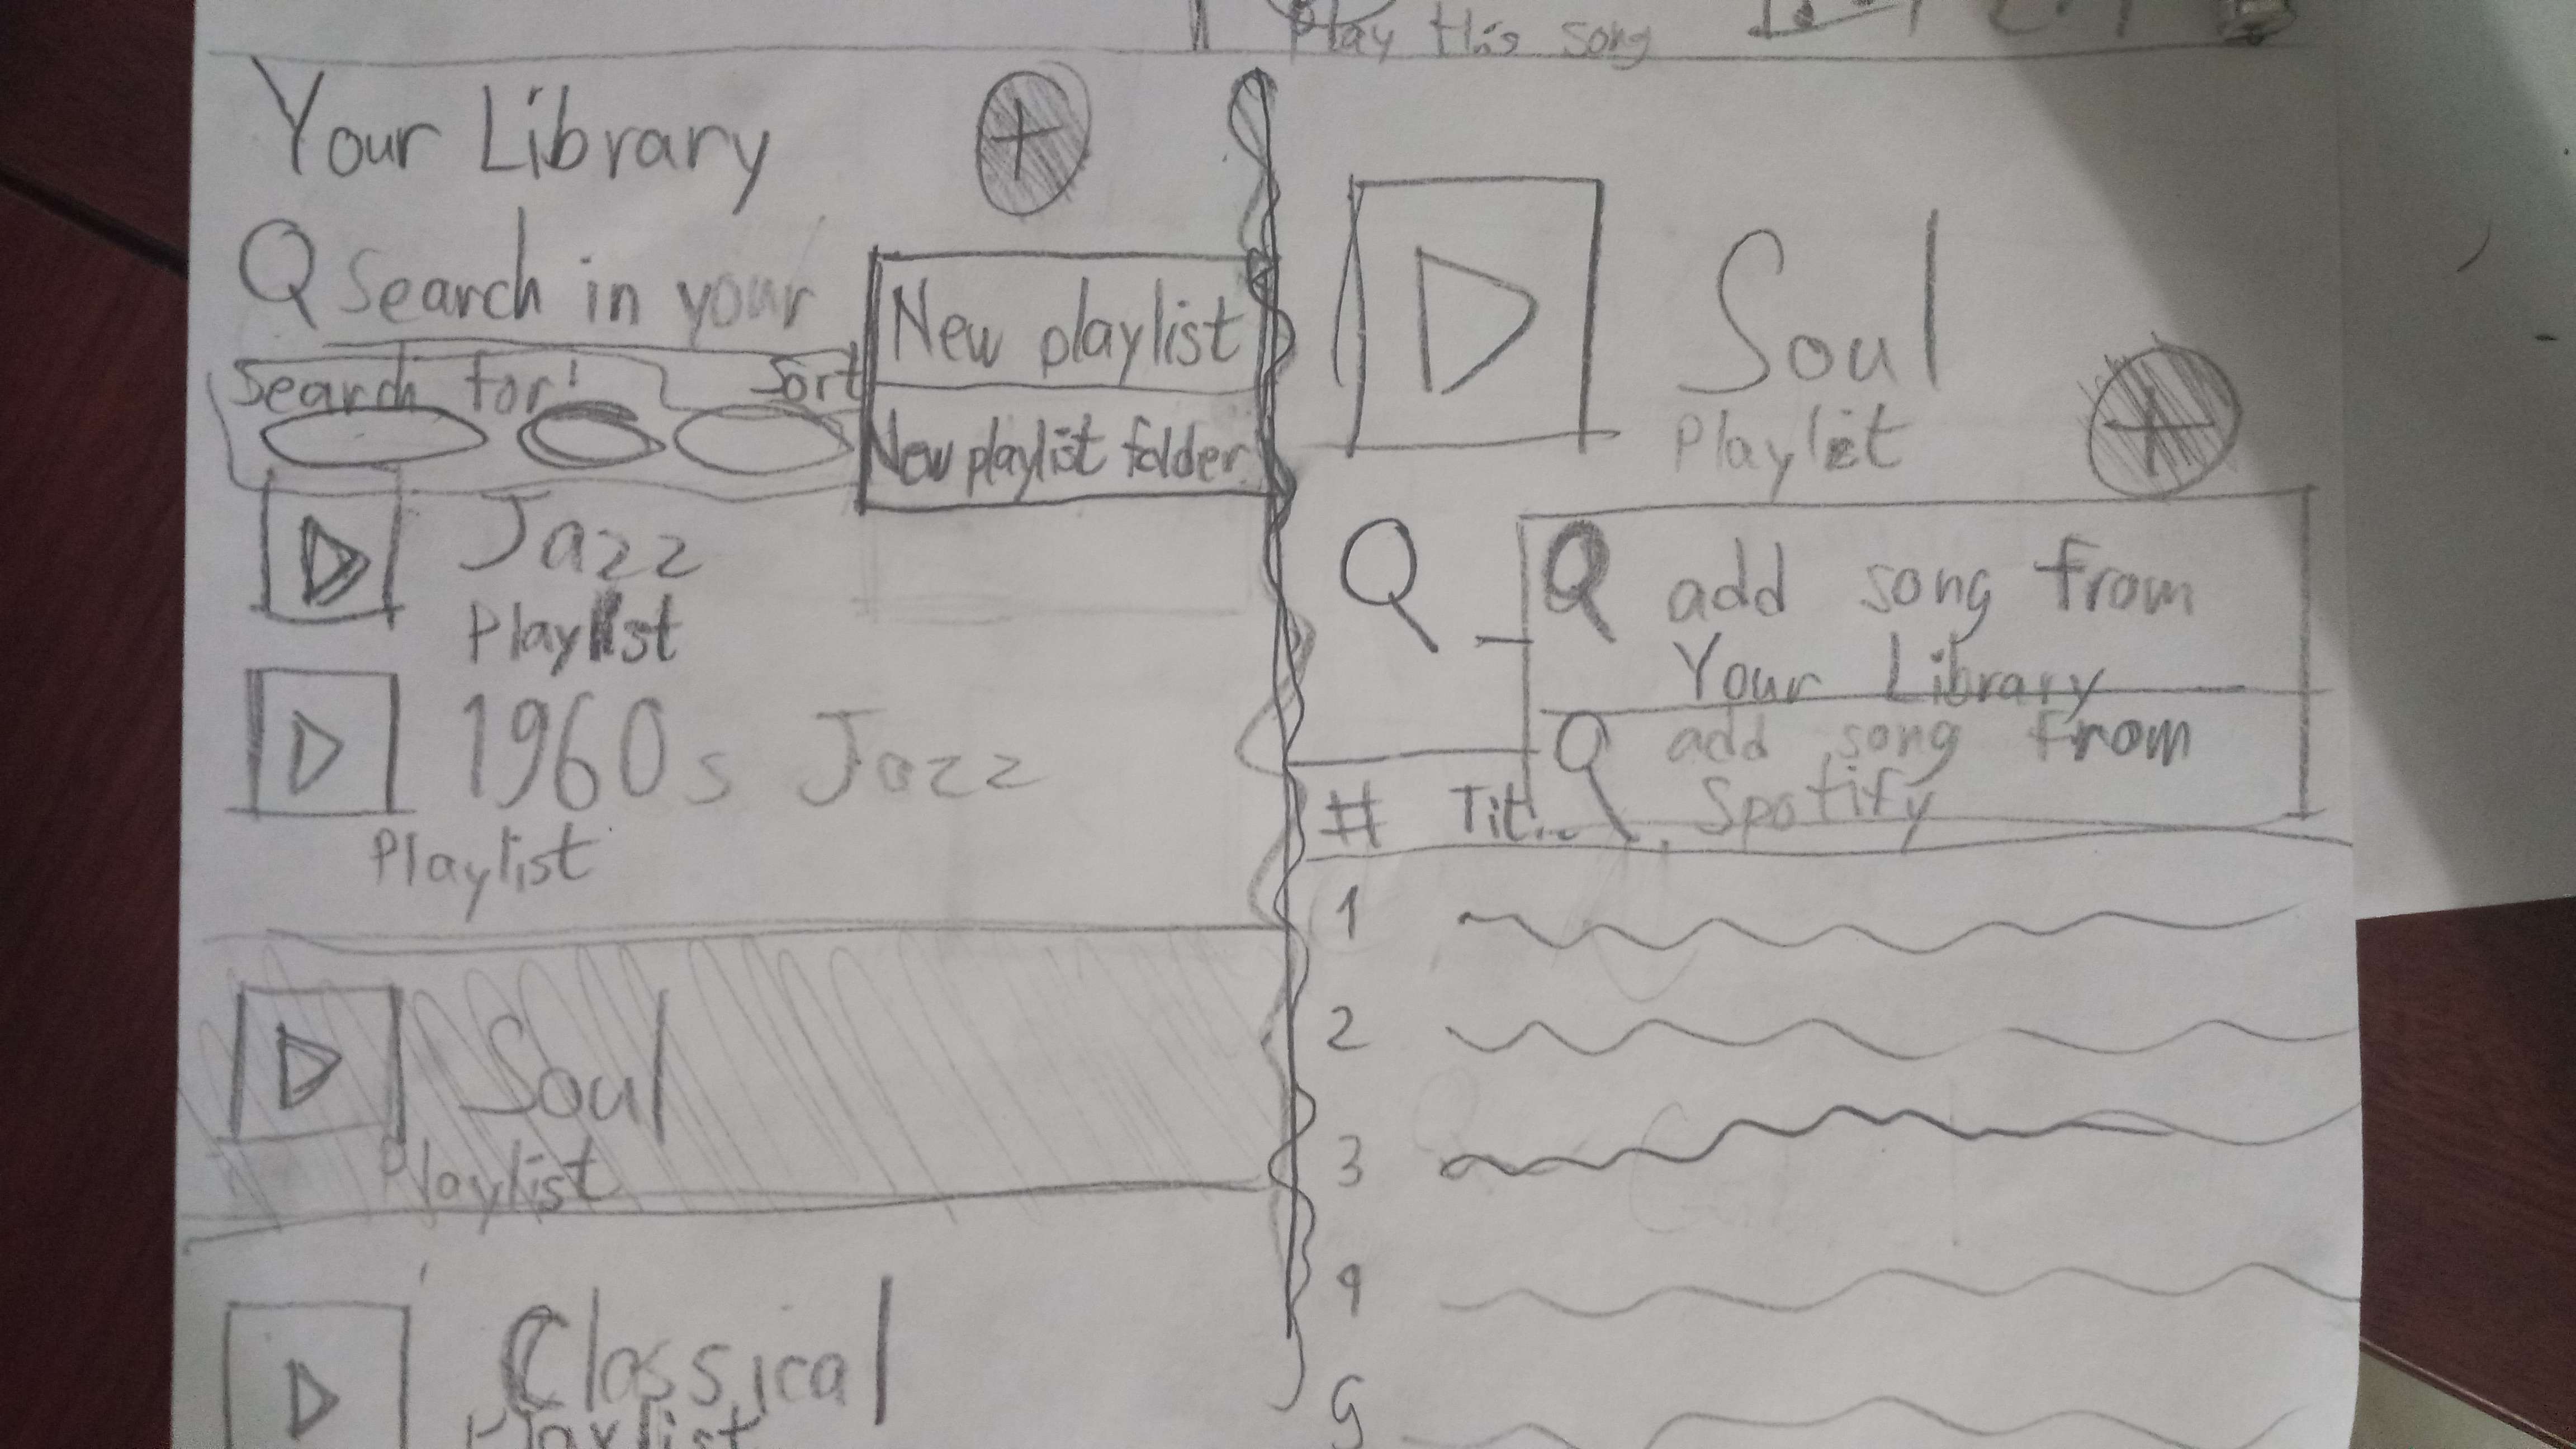 Play this song
Your Library
+
Search in your
New playlist
Search for!
Sort
New playlist folder
Jazz
Playlist
1960s Jazz
Playlist
Soul
Playlist
Classical
Playlist
Soul
Playlist
+
add song from
Your Library
add song from
Spotify
# Tit...
1
2
3
4
5